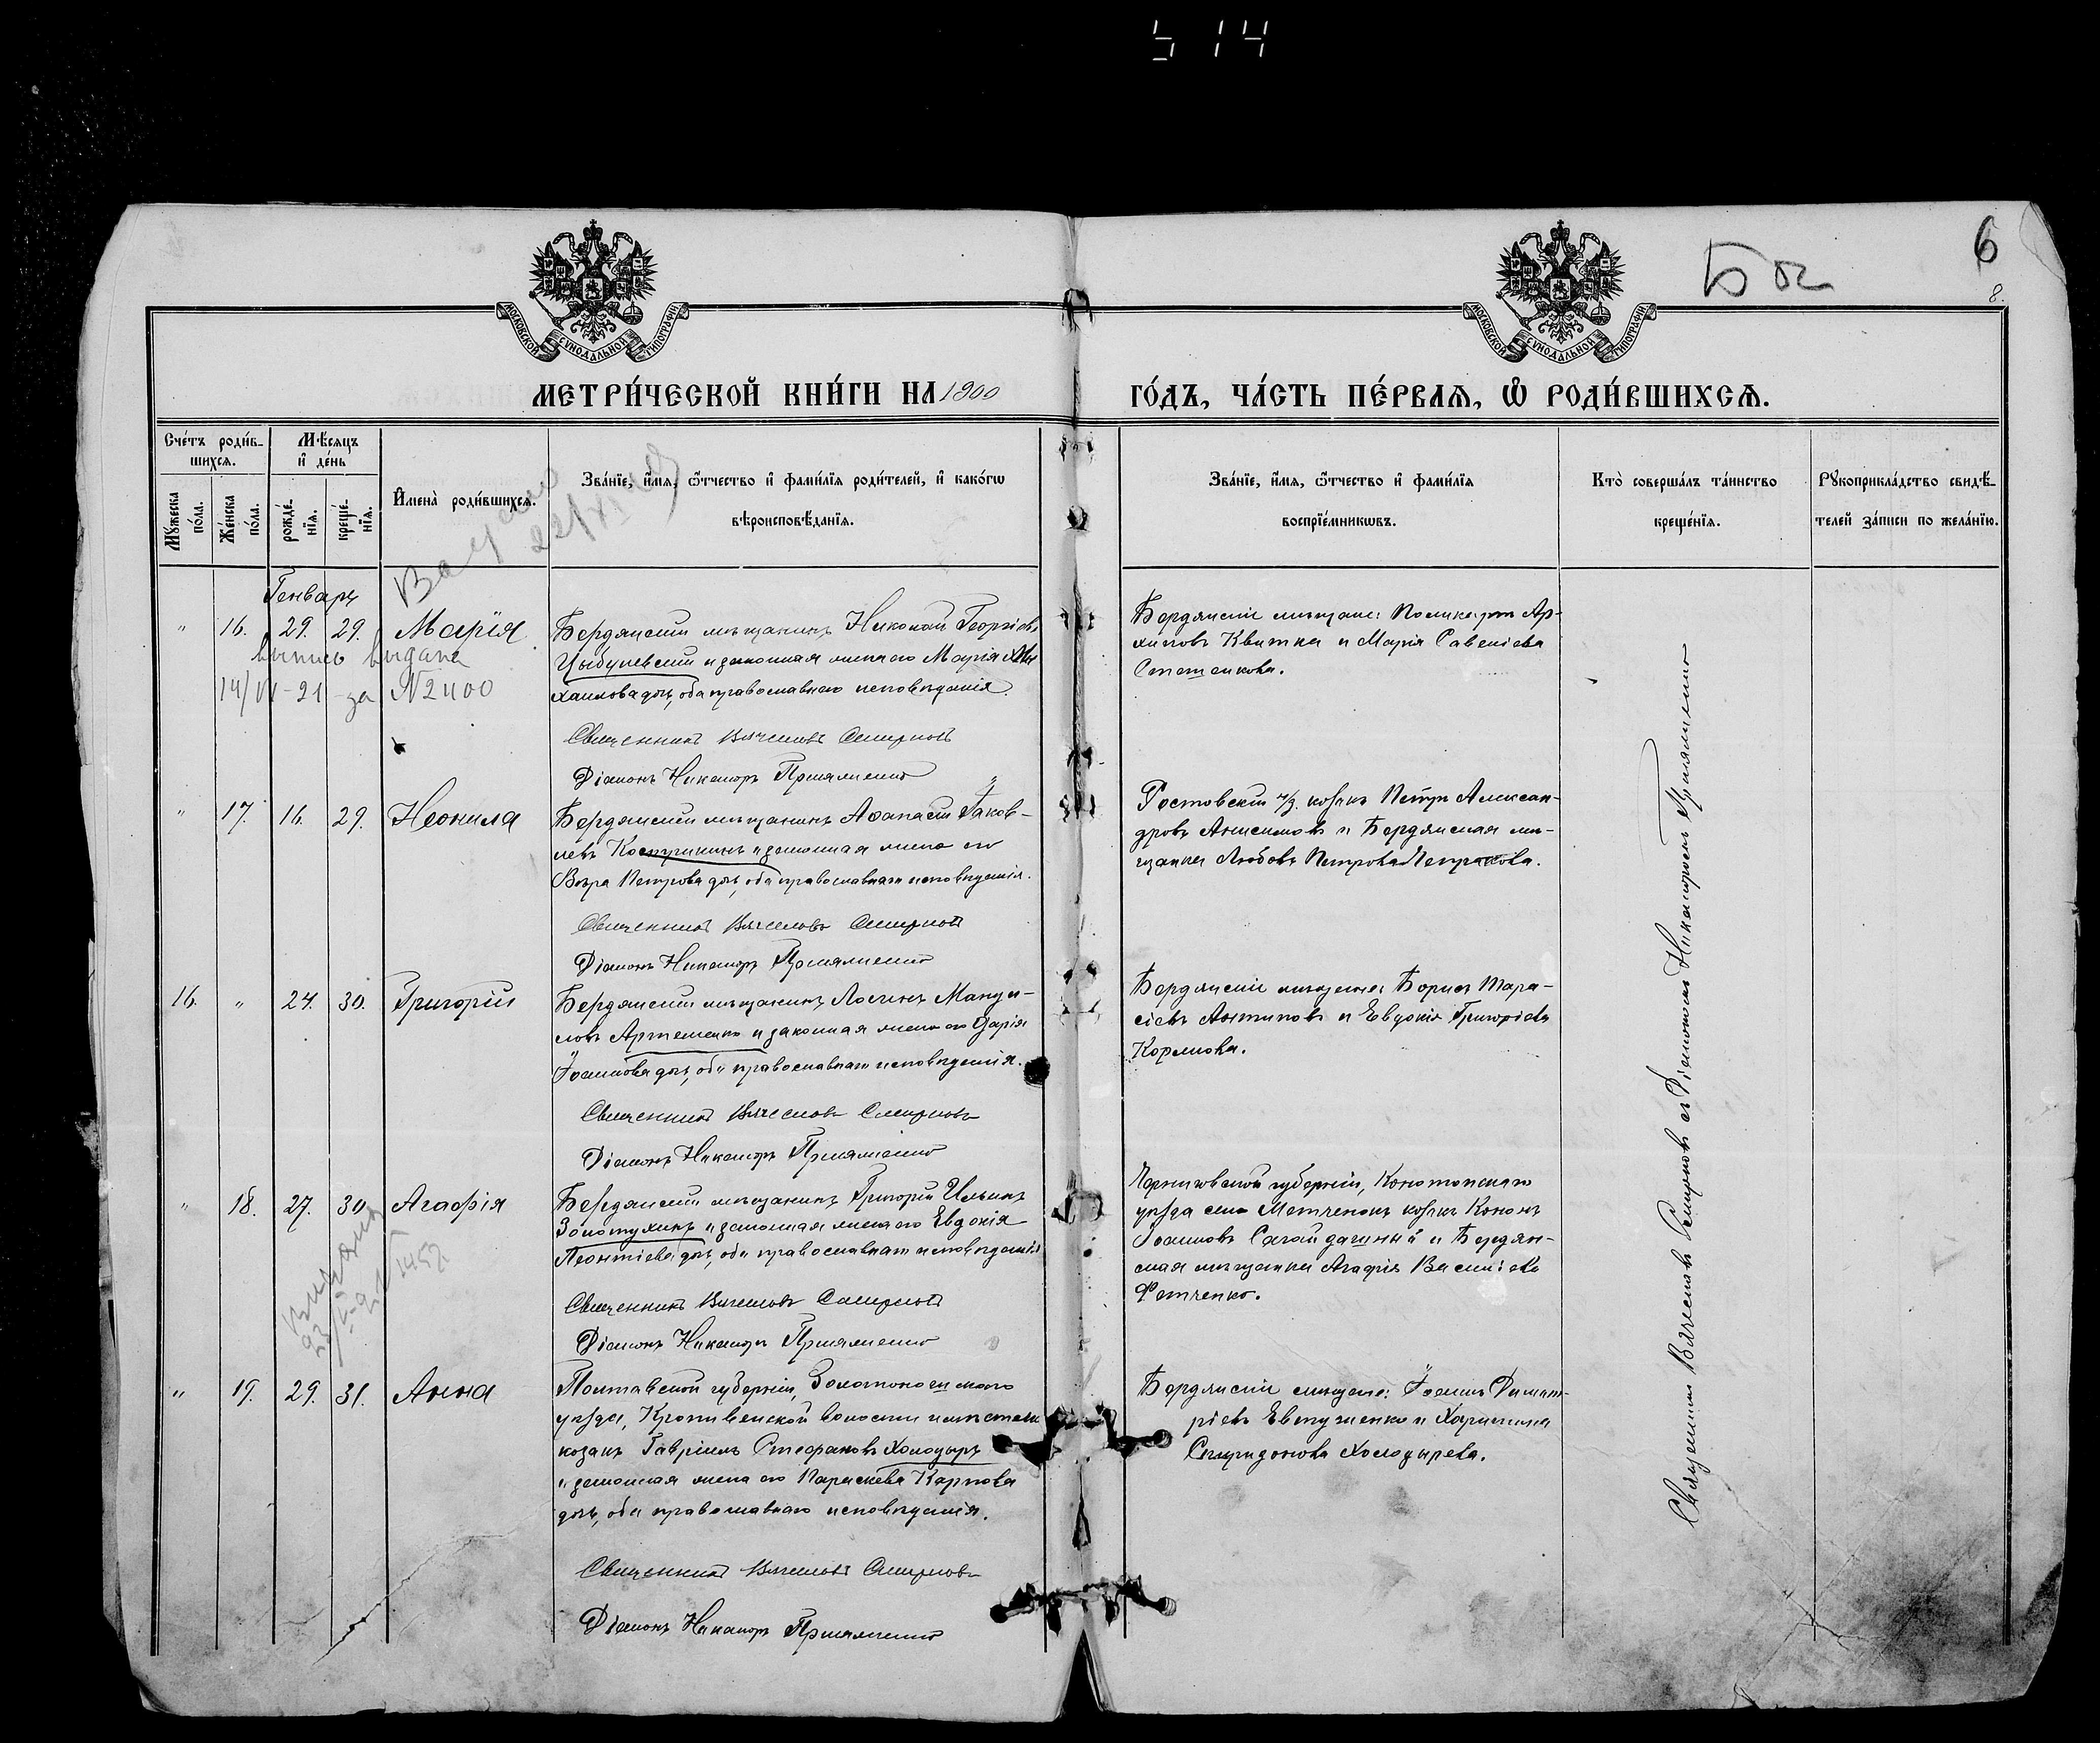 514
6
8.
МОСКОВСКОЙ СУНОДАЛЬНОЙ ТИПОГРАФІИ
МОСКОВСКОЙ СУНОДАЛЬНОЙ ТИПОГРАФІИ
МЕТРИ́ЧЕСКОЙ КНИ́ГИ НА 1900
ГО́ДЪ, ЧА́СТЬ ПЕ́РВАЯ, Ѽ РОДИ́ВШИХСЯ.
Сче́тъ роди́в-
шихся.
Мꙋ́жеска по́ла.
Же́нска по́ла.
Мѣ́сяцъ и҆ де́нь
рожде́-
нїя.
креще́-
нїя.
И҆мена̀ роди́вшихся.
Зва́нїе, и҆́мя, ѻ҆́тчество и҆ фами́лїя роди́телей, и҆ како́гѡ
вѣроисповѣ́данїя.
Зва́нїе, и҆́мя, ѻ҆́тчество и҆ фами́лїя
воспрїе́мникѡвъ.
Кто̀ соверша́лъ та́инство
креще́нїя.
Рꙋкоприкла́дство свидѣ́-
телей за́писи по жела́нїю.
Генварь
" 16. 29. 29. Марія
выпись выдана
14/VI-21 за N2400
Бердянскій мѣщанинъ Николай Георгіевъ
Цыбулевскій и законная жена его Марія Ми
хаилова дочь, оба православнаго исповѣданія.
Священникъ Вячеславъ Смирновъ
Діаконъ Никаноръ
Бердянскіе мѣщане: Поликарпъ Ар-
хиповъ Квитка и Марія Савеліева
Стеценкова.
" 17. 16. 29. Неонила
Бердянскій мѣщанинъ Аѳанасій Іаков-
левъ Кострикинъ и законная жена его
Вѣра Петрова дочь, оба православнаго исповѣданія.
Священникъ Вячеславъ Смирновъ
Діаконъ Никаноръ
Ростовскій н/Д. козакъ Петръ Алексан-
дровъ Анисимовъ и Бердянская мѣ-
щанка Любовь Петрова Петракова.
16. " 24. 30. Григорій
Бердянскій мѣщанинъ Логинъ Мануи-
ловъ Артеменко и законная жена его Дарія
Іоаннова дочь, оба православнаго исповѣданія.
Священникъ Вячеславъ Смирновъ
Діаконъ Никаноръ
Бердянскіе мѣщане: Борисъ Тара-
сіевъ Антиповъ и Евдокія Григоріева
" 18. 27. 30. Агафія
Бердянскій мѣщанинъ Григорій Ильинъ
Золотухинъ и законная жена его Евдокія
Леонтіева дочь, оба православнаго исповѣданія
Священникъ Вячеславъ Смирновъ
Діаконъ Никаноръ
Черниговской губерніи, Конотопскаго
уѣзда села козакъ Кононъ
Іоанновъ и Бердян-
ская мѣщанка Агафія Василіева
Фетченко.
" 19. 29. 31. Анна
Полтавской губерніи, Золотоношскаго
уѣзда, Кропивенской волости и мѣстечка
козакъ Гавріилъ Стефановъ Холодыръ
и законная жена его Параскева Карпова
дочь, оба православнаго исповѣданія.
Священникъ Вячеславъ Смирновъ
Діаконъ Никаноръ
Бердянскіе мѣщане: Іоаннъ Димит-
ріевъ Евтушенко и Харитина
Спиридонова Холодырева.
Священникъ Вячеславъ Смирновъ съ Діакономъ Никаноромъ